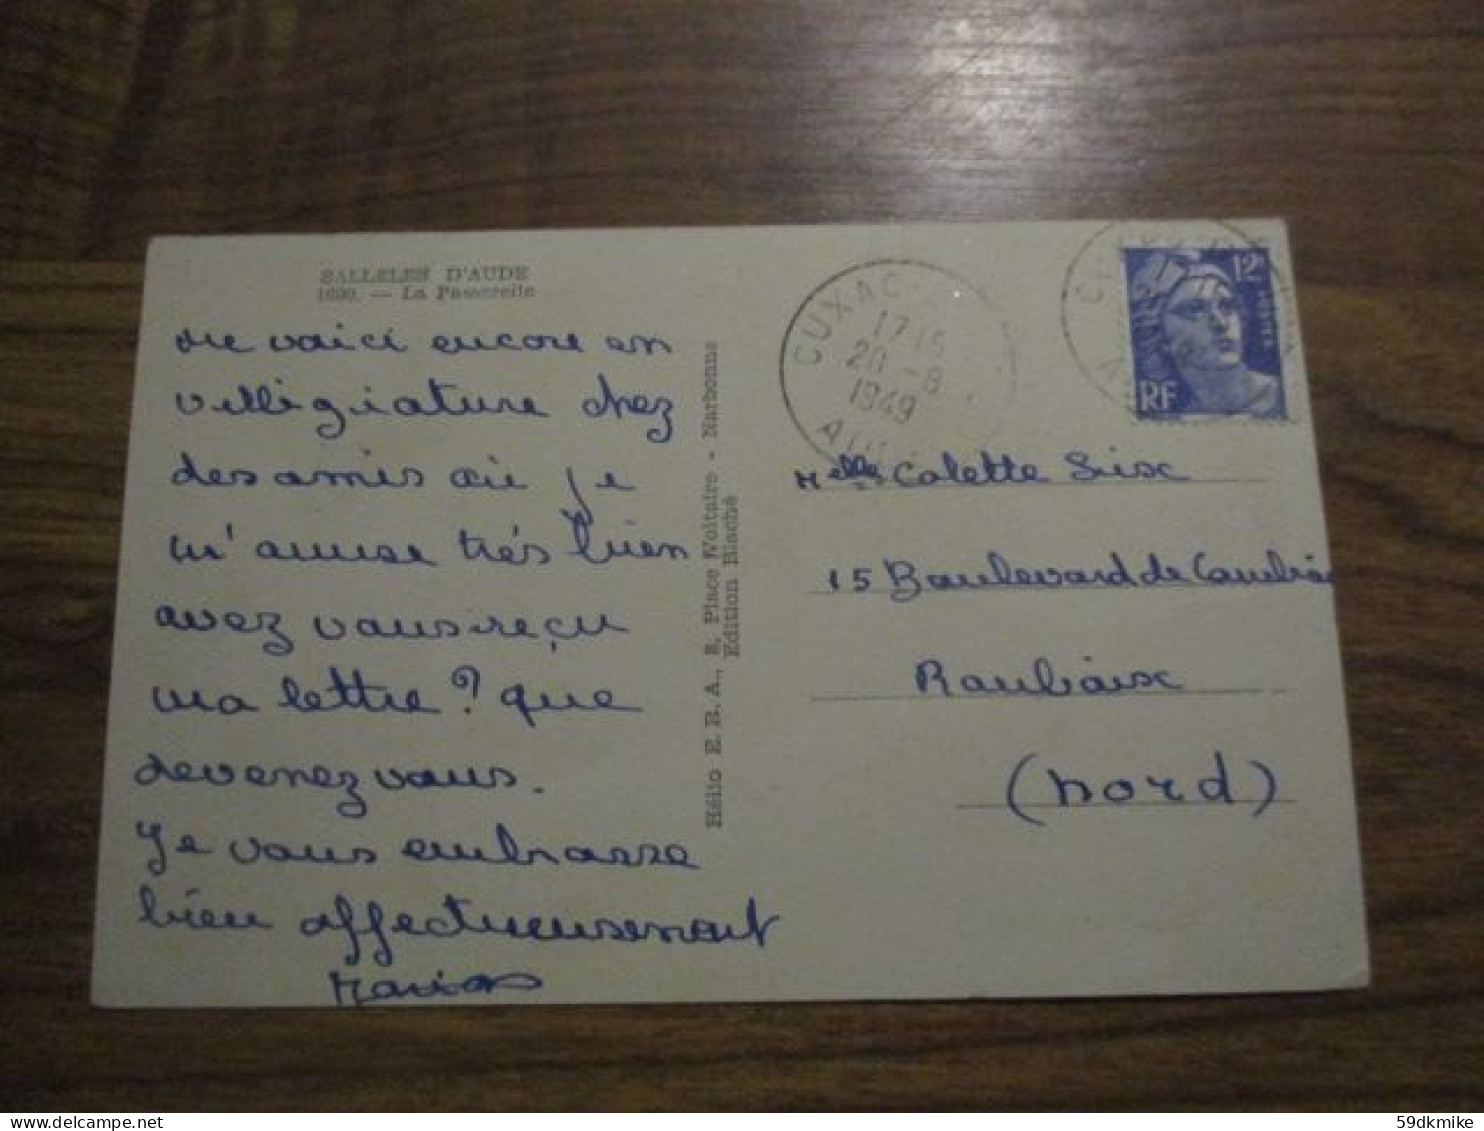 SALLELES D'AUDE
1600. — La Passerelle
me voici encore en
villégiature chez
des amis où je
m'amuse très bien
avez vous reçu
ma lettre? que
devenez vous.
Je vous embrasse
bien affectueusement
Hélio E. R. A., 8, Place Voltaire - Narbonne
Edition Blaché
CUXAC
17 15
20 -8
1949
12F
POSTES
RF
Melle Colette
15 Boulevard de Cambrai
Roubaix
(Nord)
delcampe.net
59dkmike